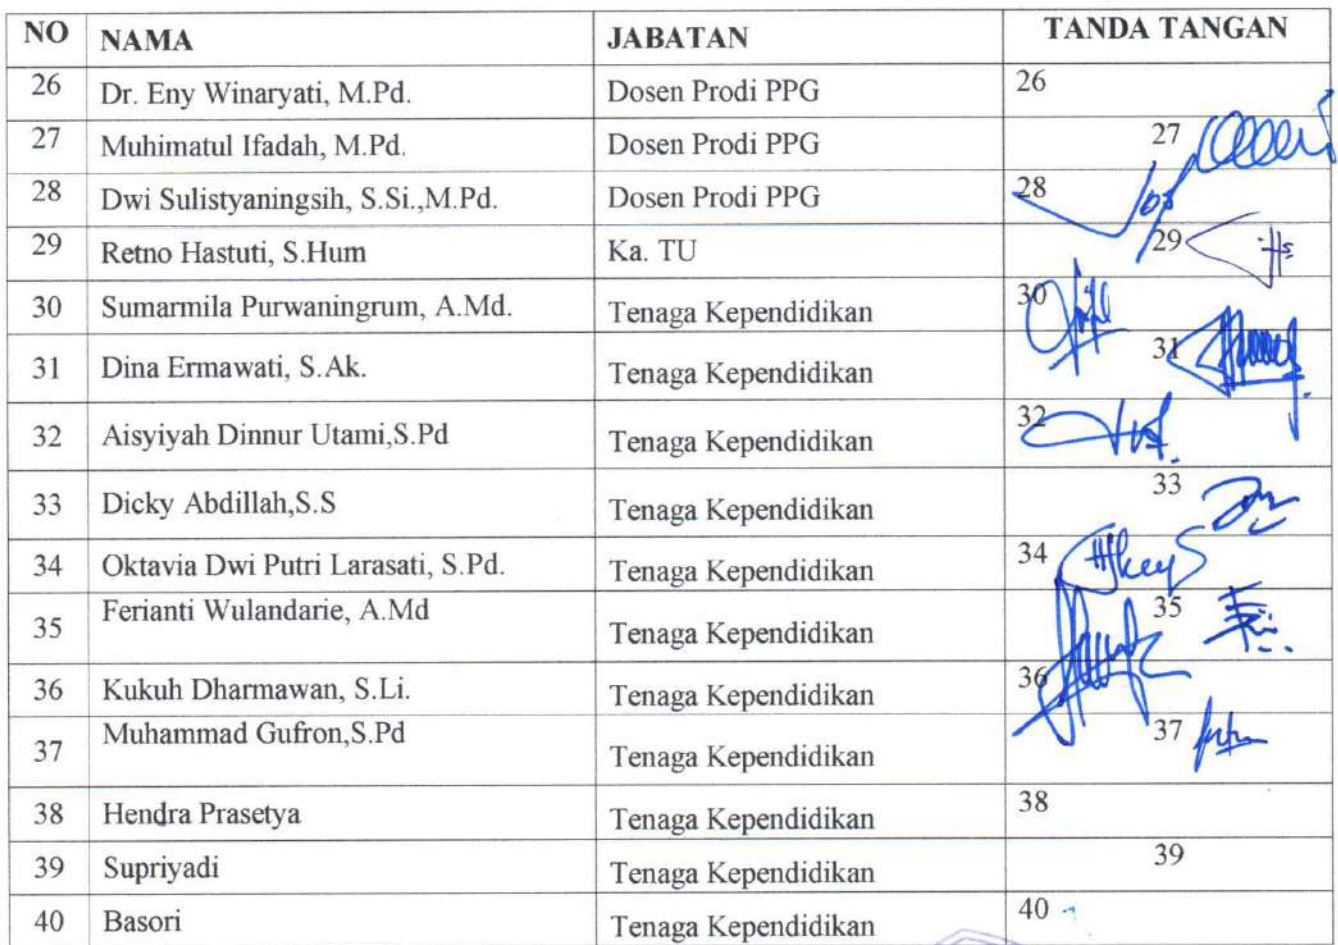 NO NAMA JABATAN TANDA TANGAN
26 Dr. Eny Winaryati, M.Pd. Dosen Prodi PPG 26
27 Muhimatul Ifadah, M.Pd. Dosen Prodi PPG 27
28 Dwi Sulistyaningsih, S.Si.,M.Pd. Dosen Prodi PPG 28
29 Retno Hastuti, S.Hum Ka. TU 29
30 Sumarmila Purwaningrum, A.Md. Tenaga Kependidikan 30
31 Dina Ermawati, S.Ak. Tenaga Kependidikan 31
32 Aisyiyah Dinnur Utami,S.Pd Tenaga Kependidikan 32
33 Dicky Abdillah,S.S Tenaga Kependidikan 33
34 Oktavia Dwi Putri Larasati, S.Pd. Tenaga Kependidikan 34
35 Ferianti Wulandarie, A.Md Tenaga Kependidikan 35
36 Kukuh Dharmawan, S.Li. Tenaga Kependidikan 36
37 Muhammad Gufron,S.Pd Tenaga Kependidikan 37
38 Hendra Prasetya Tenaga Kependidikan 38
39 Supriyadi Tenaga Kependidikan 39
40 Basori Tenaga Kependidikan 40